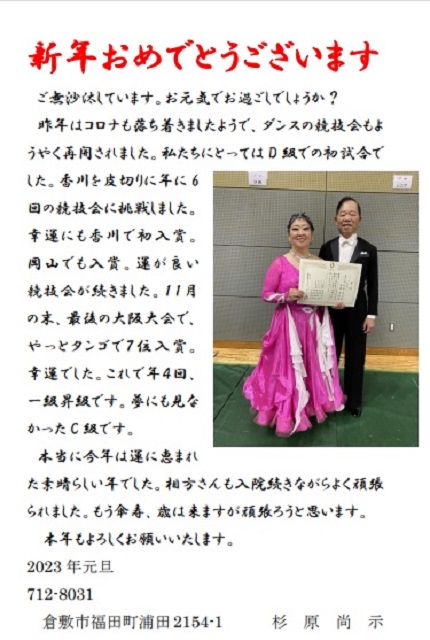 新年おめでとうございます
ご無沙汰しています。お元気でお過ごしでしょうか？
昨年はコロナも落ち着きましたようで、ダンスの競技会もよ
うやく再開されました。私たちにとってはD級での初試合で
した。香川を皮切りに年に6
回の競技会に挑戦しました。
幸運にも香川で初入賞。
岡山でも入賞。運が良い
競技会が続きました。11月
の末、最後の大阪大会で、
やっとタンゴで7位入賞。
幸運でした。これで年4回、
一級昇級です。夢にも見な
かったC級です。
本当に今年は運に恵まれ
た素晴らしい年でした。相方さんも入院続きながらよく頑張
られました。もう傘寿、歳は来ますが頑張ろうと思います。
本年もよろしくお願いいたします。
2023年元旦
712-8031
倉敷市福田町浦田2154-1 杉原尚示